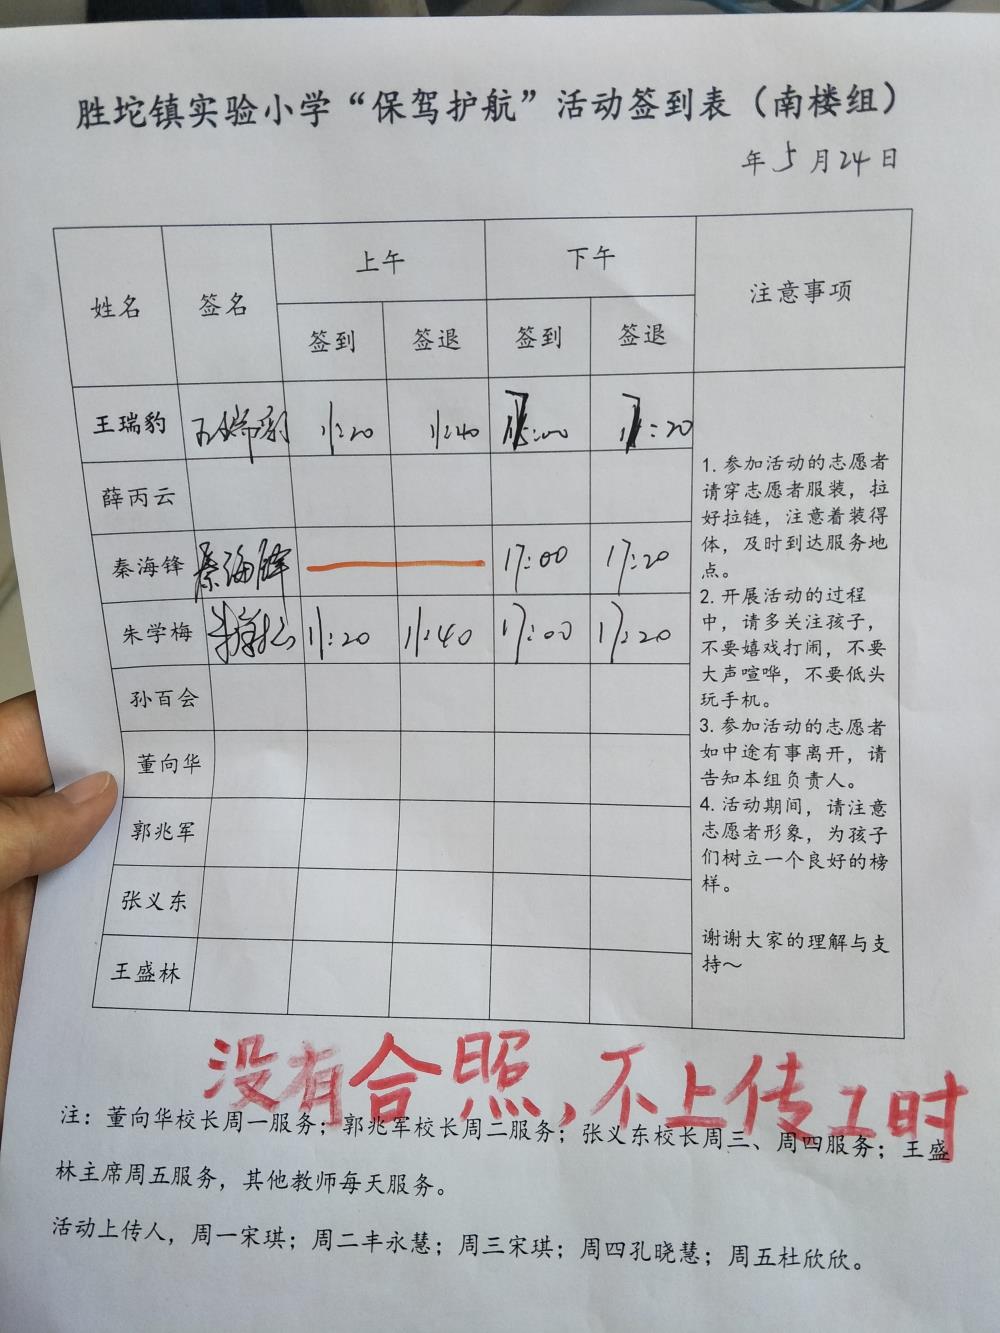 胜坨镇实验小学“保驾护航”活动签到表（南楼组）
年5月24日
姓名 签名 上午 下午 注意事项
签到 签退 签到 签退
王瑞豹 王瑞豹 11:20 11:40 17:00 17:20
薛丙云
秦海锋 秦海锋 17:00 17:20
朱学梅 朱学梅 11:20 11:40 17:00 17:20
孙百会
董向华
郭兆军
张义东
王盛林
1. 参加活动的志愿者
请穿志愿者服装，拉
好拉链，注意着装得
体，及时到达服务地
点。
2. 开展活动的过程
中，请多关注孩子，
不要嬉戏打闹，不要
大声喧哗，不要低头
玩手机。
3. 参加活动的志愿者
如中途有事离开，请
告知本组负责人。
4. 活动期间，请注意
志愿者形象，为孩子
们树立一个良好的榜
样。
谢谢大家的理解与支
持～
没有合照，不上传工时
注：董向华校长周一服务；郭兆军校长周二服务；张义东校长周三、周四服务；王盛
林主席周五服务，其他教师每天服务。
活动上传人，周一宋琪；周二丰永慧；周三宋琪；周四孔晓慧；周五杜欣欣。